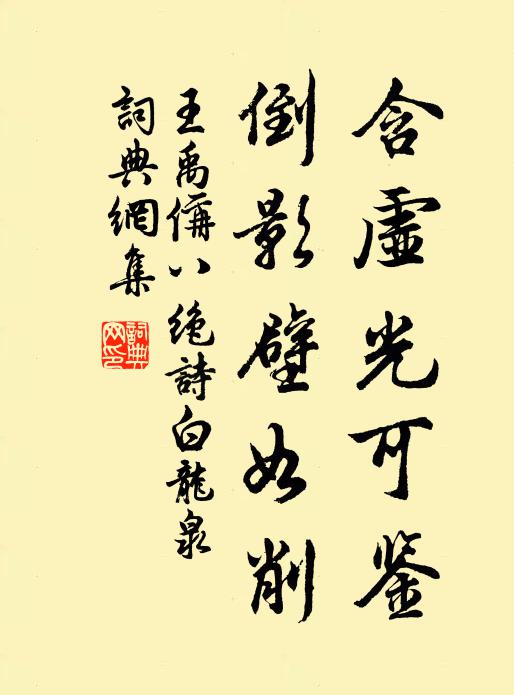 含虛光可鉴
倒影壁如削
王禹偁八絶詩白龍泉
詞典網集
詞典网印